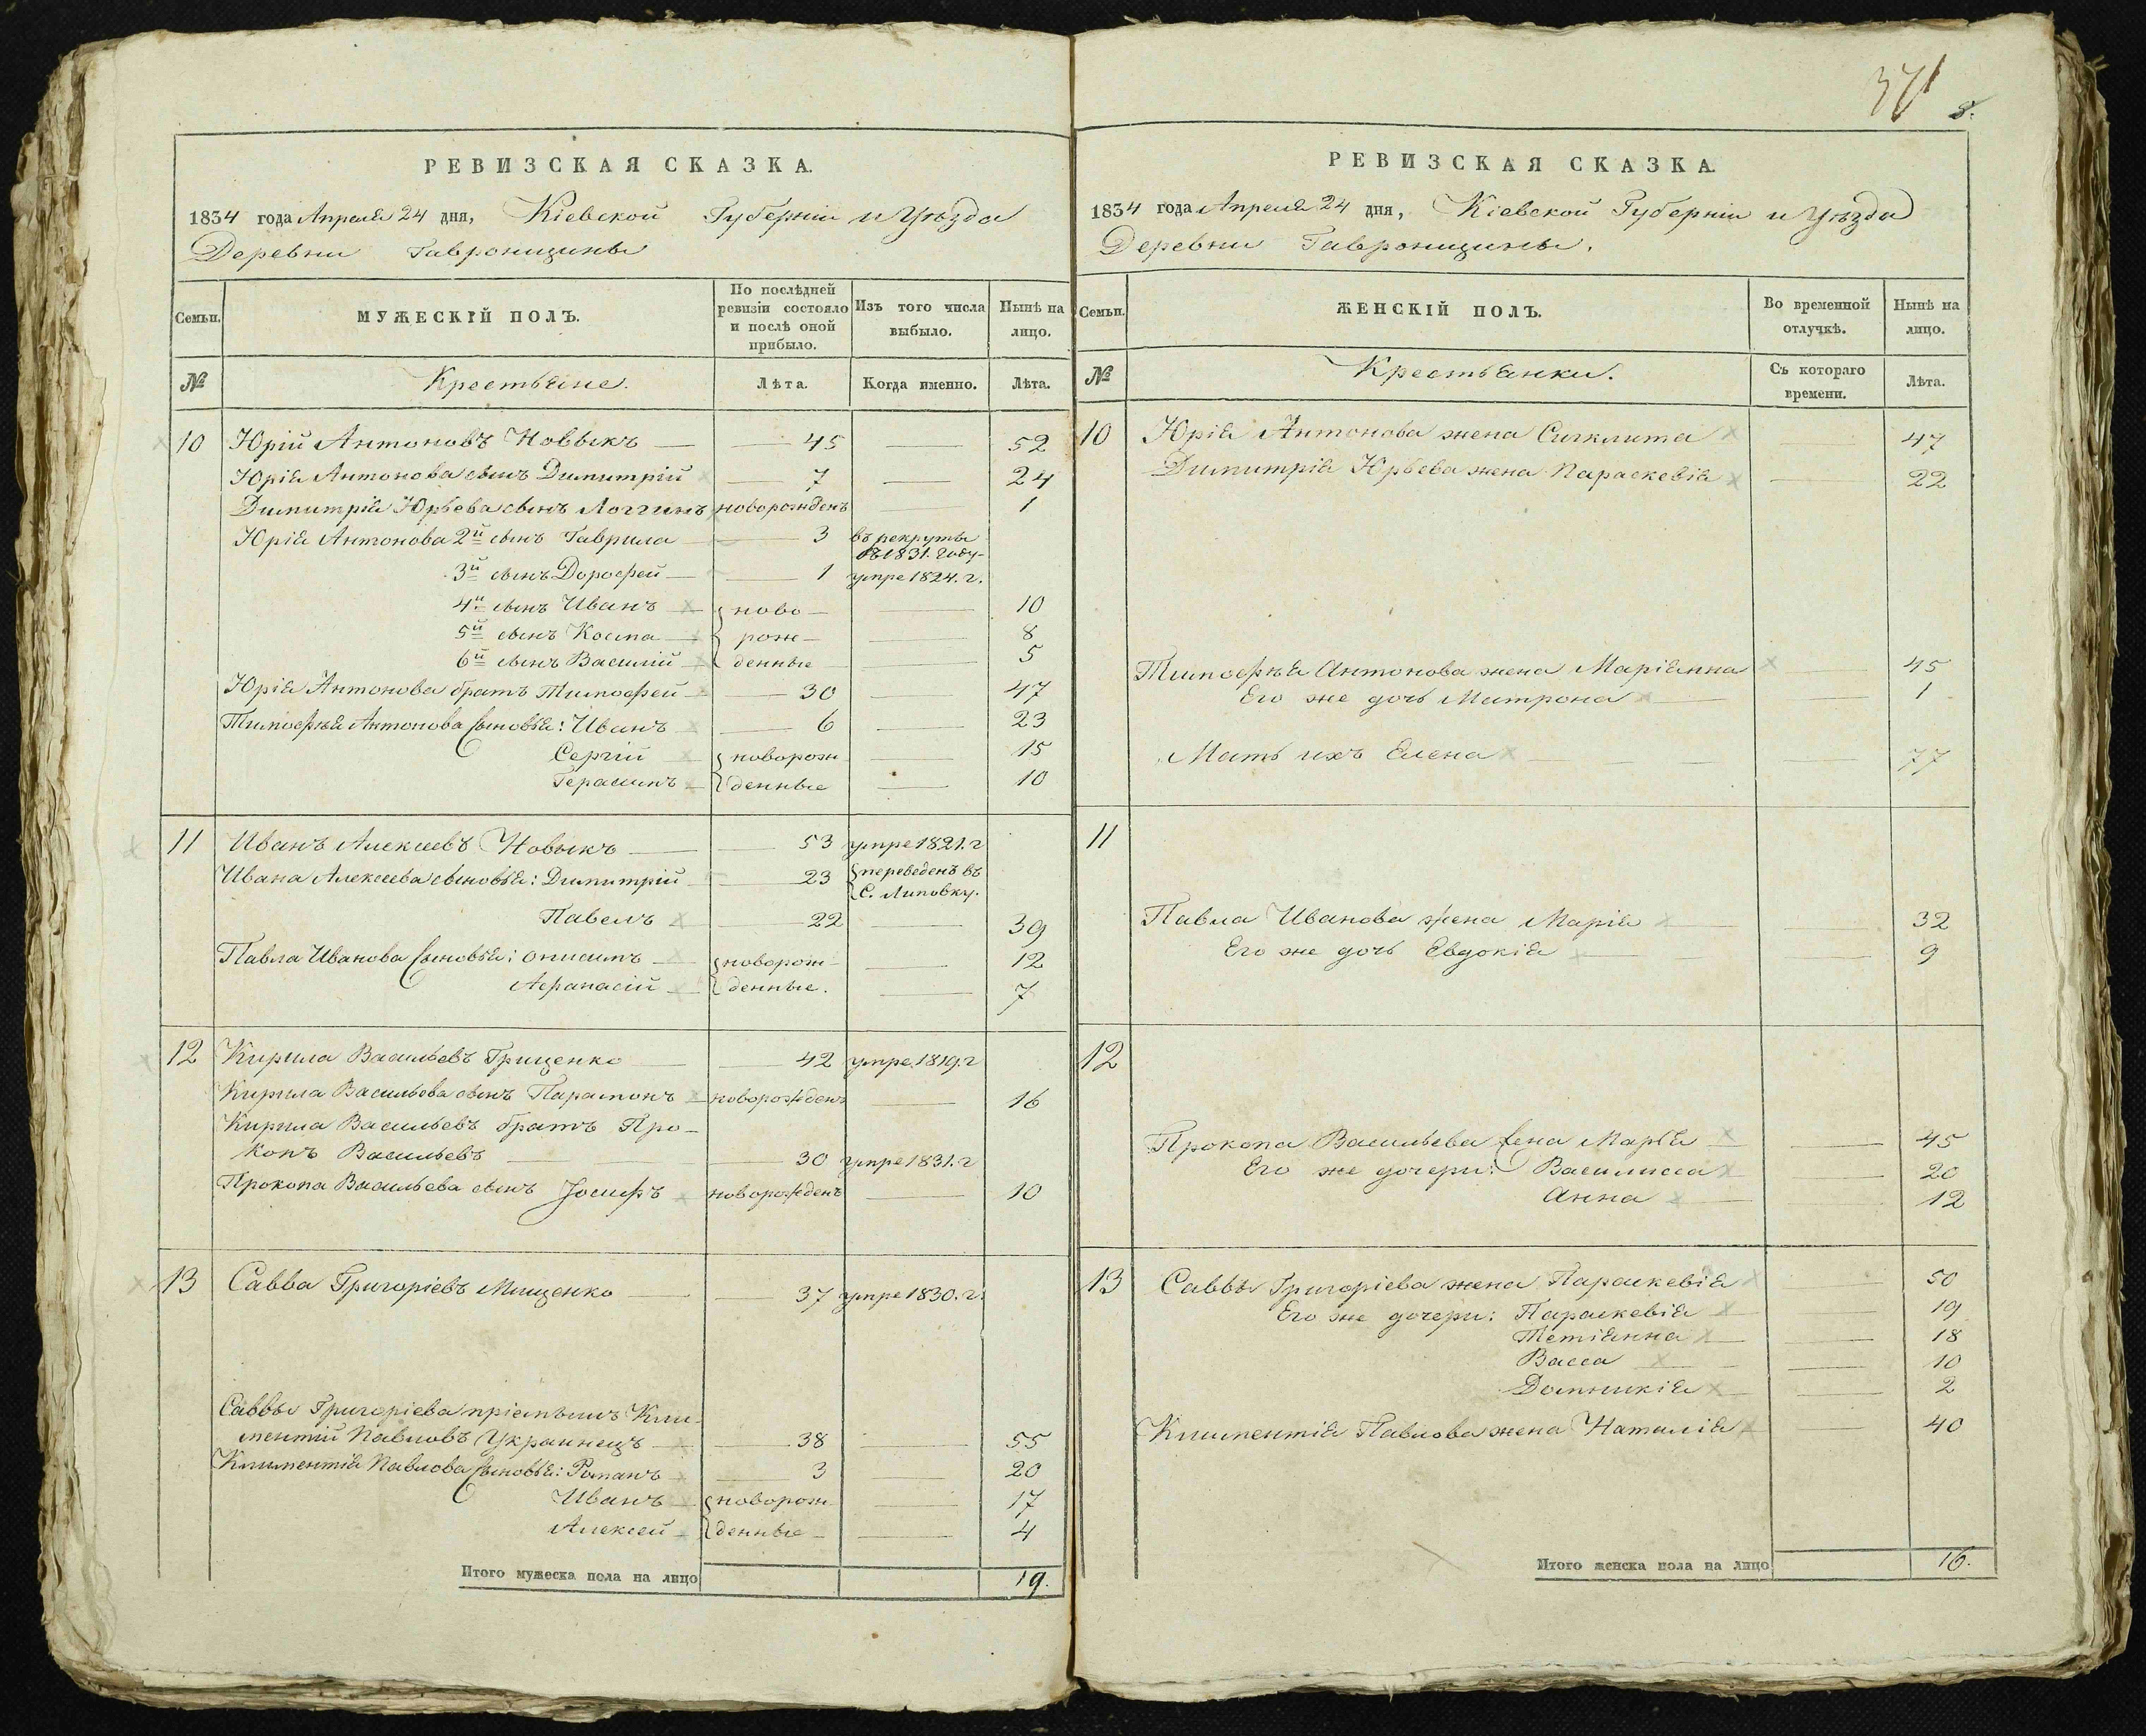 РЕВИЗСКАЯ СКАЗКА.
1834 года Апреля 24 дня, Кіевской Губерніи и Уѣзда
Деревни Гавронщины
Семьи.
МУЖЕСКІЙ ПОЛЪ.
По послѣдней ревизіи состояло и послѣ оной прибыло.
Изъ того числа выбыло.
Нынѣ на лицо.
№ Крестьяне. Лѣта. Когда именно. Лѣта.
10 Юрій Антоновъ Новыкъ 45 52
Юрія Антонова сынъ Димитрій 7 24
Димитрія Юрьева сынъ Логгинъ новорожденъ 1
Юрія Антонова 2й сынъ Гаврила 3 въ рекруты въ 1831. году
3й сынъ Дорофей 1 умре 1824. г.
4й сынъ Иванъ ново- 10
5й сынъ Косма рож- 8
6й сынъ Василій денные 5
Юрія Антонова братъ Тимофей 30 47
Тимофѣя Антонова сыновья: Иванъ 6 23
Сергій новорож- 15
Герасимъ денные 10
11 Иванъ Алексеевъ Новыкъ 53 умре 1821. г
Ивана Алексеева сыновья: Димитрій 23 переведенъ въ С. Липовку.
Павелъ 22 39
Павла Иванова сыновья: Онисимъ новорож- 12
Афанасій денные. 7
12 Кирила Васильевъ Грищенко 42 умре 1819. г
Кирила Васильева сынъ Парамонъ новорожденъ 16
Кирила Васильевъ братъ Про-
копъ Васильевъ 30 умре 1831. г
Прокопа Васильева сынъ Іосифъ новорожденъ 10
13 Савва Григоріевъ Мищенко 37 умре 1830. г.
Саввы Григоріева пріемышъ Кли-
ментій Павловъ Украинецъ 38 55
Климентія Павлова сыновья: Романъ 3 20
Иванъ новорож- 17
Алексей денные 4
Итого мужеска пола на лицо 19.
371
8.
РЕВИЗСКАЯ СКАЗКА.
1834 года Апреля 24 дня, Кіевской Губерніи и Уѣзда
Деревни Гавронщины.
Семьи.
ЖЕНСКІЙ ПОЛЪ.
Во временной отлучкѣ.
Нынѣ на лицо.
№ Крестьянки. Съ котораго времени. Лѣта.
10 Юрія Антонова жена Сигклита 47
Димитрія Юрьева жена Параскевія 22
Тимофѣя Антонова жена Маріанна 45
Его же дочь Матрона 1
Мать ихъ Елена 77
11
Павла Иванова жена Марія 32
Его же дочь Евдокія 9
12
Прокопа Васильева жена Марья 45
Его же дочери: Василисса 20
Анна 12
13 Саввы Григоріева жена Параскевія 50
Его же дочери: Параскевія 19
Тетіянна 18
Васса 10
Домникія 2
Климентія Павлова жена Наталія 40
Итого женска пола на лицо 16.